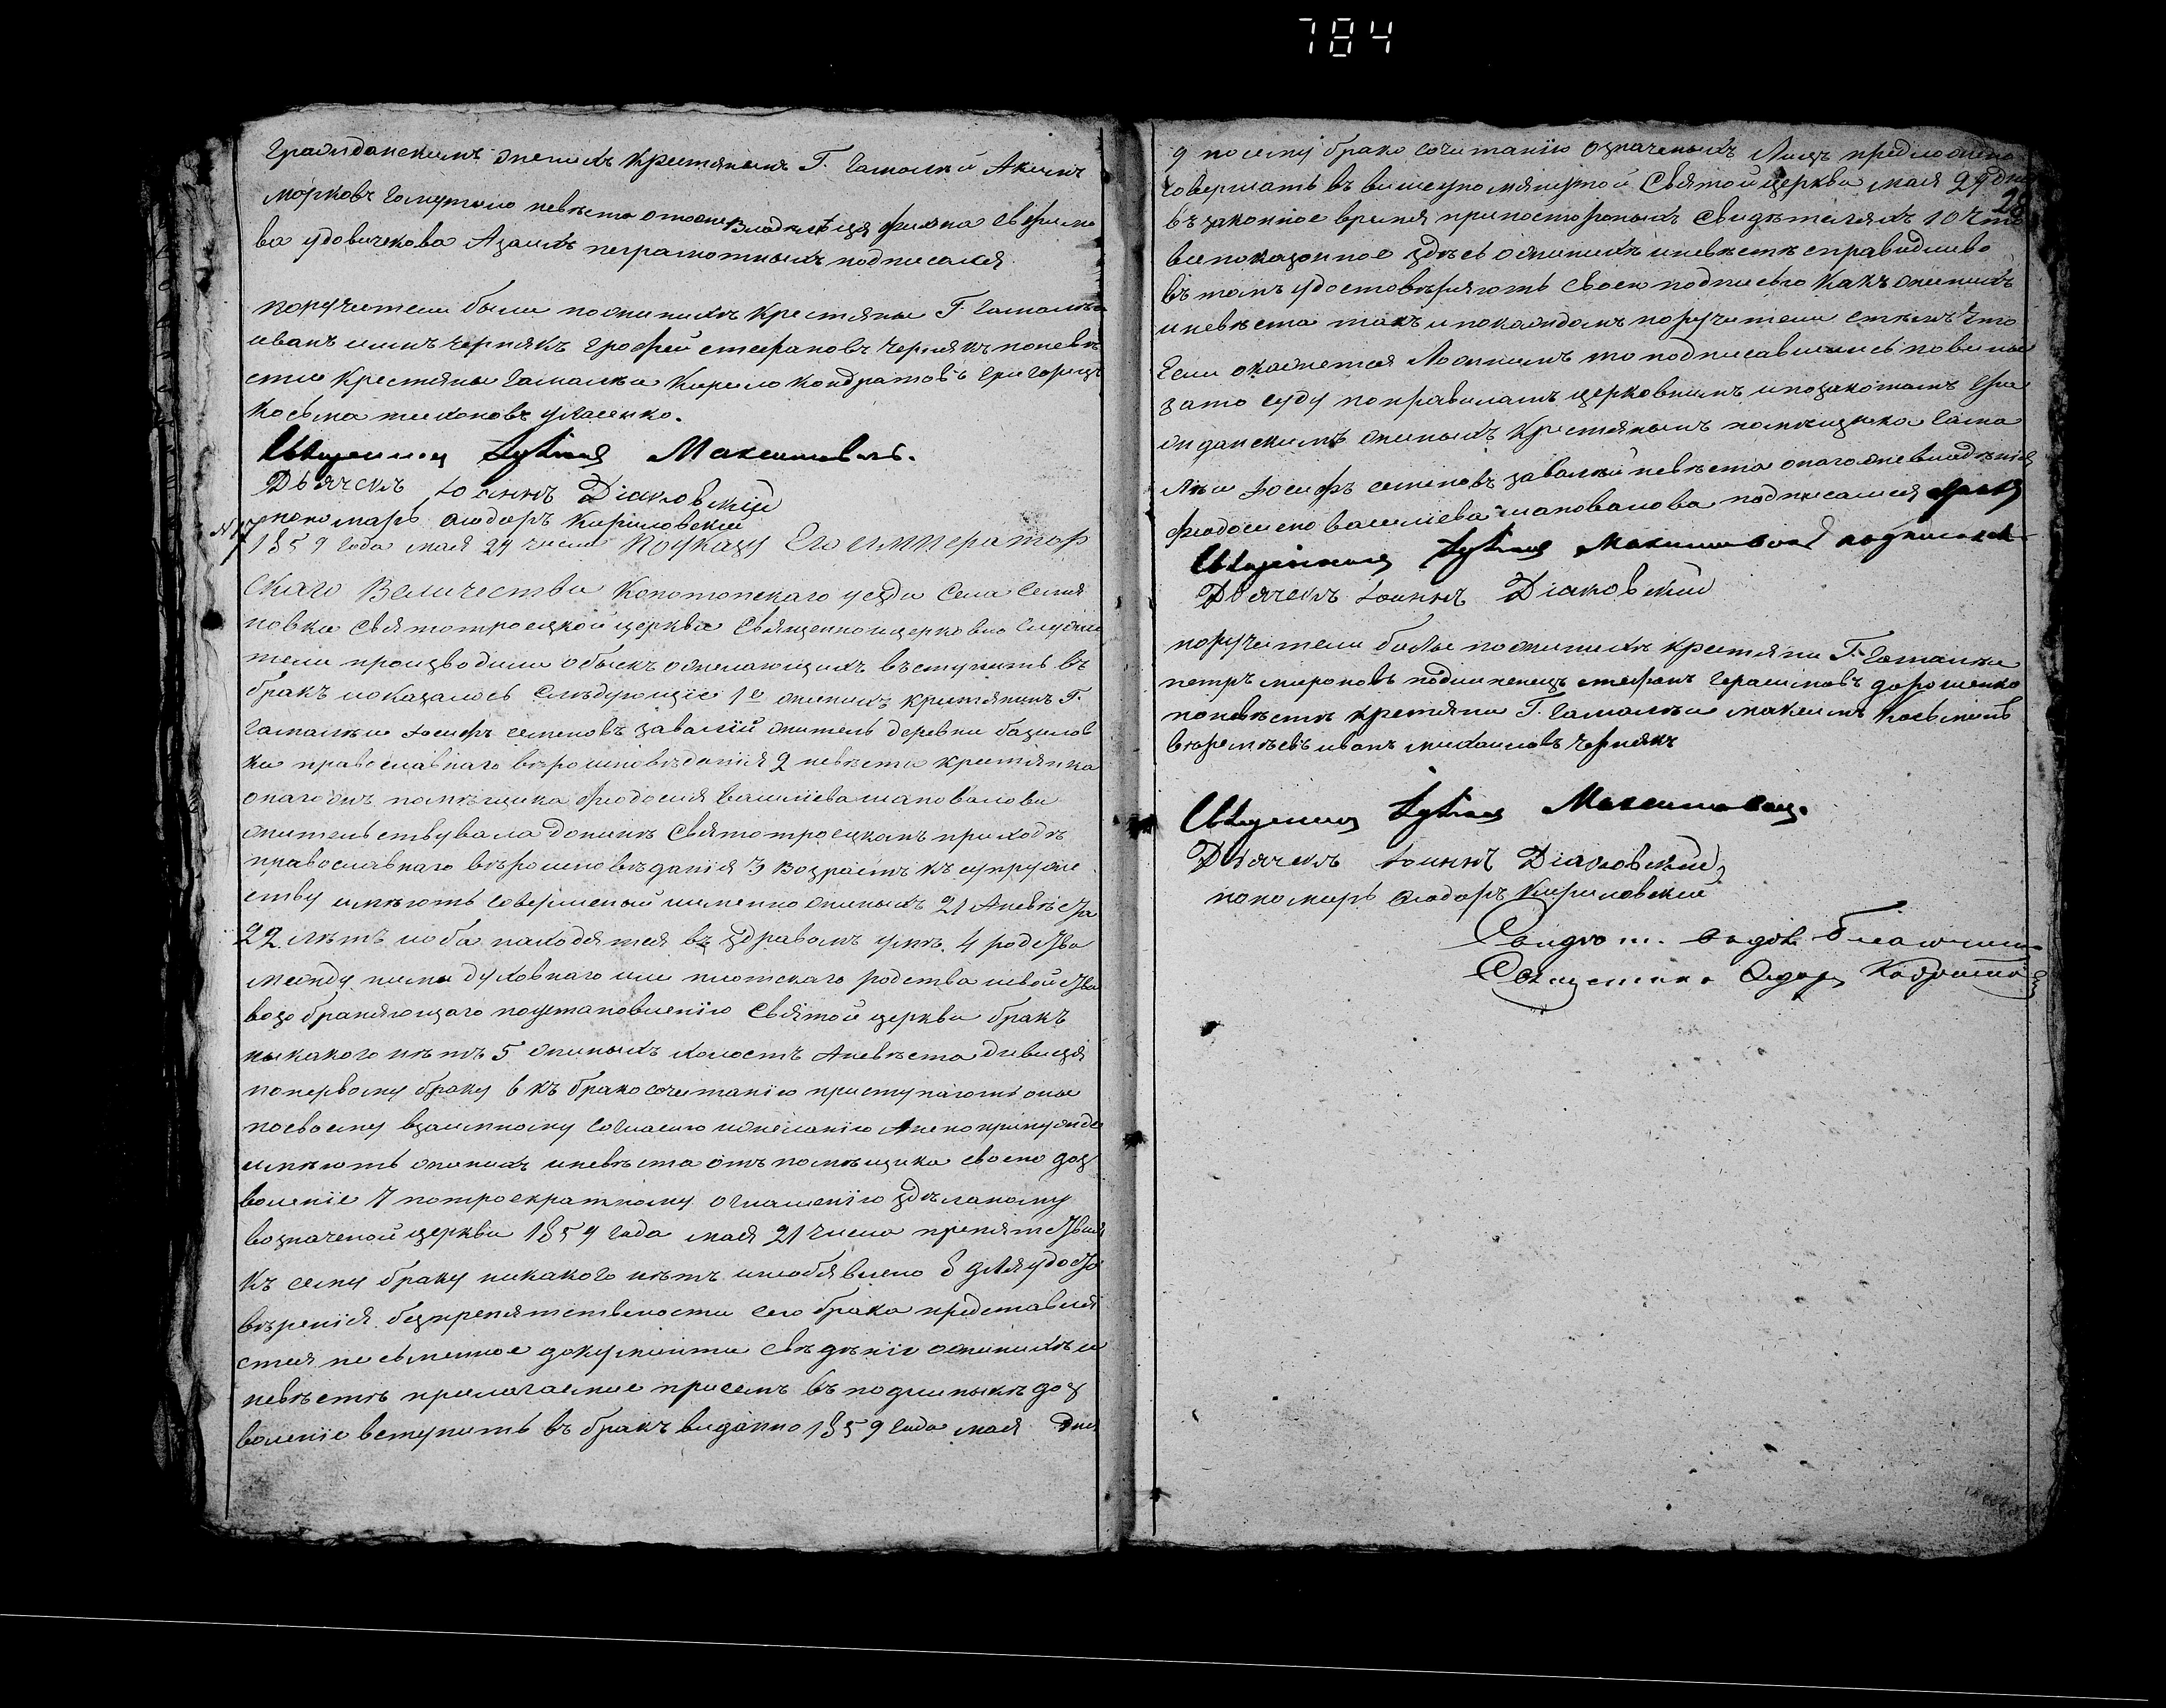 784
гражданскимъ женихъ крестянинъ Г. Гамалѣи Акимъ
Марковъ невѣста владѣнія Ефимо
ва удовиченкова А за ихъ неграмотныхъ подписался
поручители были по женихѣ крестяны Г. Гамалѣи
иванъ черпякъ стефановъ черпякъ по невѣ
сте крестяны Гамалѣи Кирило Кондратовъ
Косьма тихоновъ
Священникъ Максимовичъ.
Дьячекъ Іоаннъ Діаковскій
пономарь Ѳіодоръ Кириловский
1859 года мая 29 числа По указу Его император
скаго Величества Конотопскаго уезда Села Семя
новки Святотроецкой церкви Священно и церковно служи
тели производили обыскъ о желающихъ въступить въ
бракъ и оказалось слѣдующіе 1е женихъ крестянинъ Г.
Гамалѣи Іосифъ семеновъ завалий житель деревни базилов
ки православнаго вѣроисповѣданія 2 невѣста крестянка
онагожъ помѣщика Фіодосия василіева шаповалова
жительствувала донынѣ Святотроецкомъ приходѣ
православнаго вѣроисповѣданія 3 Возрастъ къ супруже
ству имѣютъ совершеной именно женихъ 21 А невѣста
22 лѣтъ и оба находятся въ здравомъ умѣ. 4 родства
между ними духовнаго или плотскаго родства и свойства
возбраняющаго по установленію Святой церкви бракъ
никакого нѣтъ 5 женихъ холостъ А невѣста дивиця
по первому браку 6 къ бракосочетанію приступаютъ оны
по своему взаимному согласию и желанію А не по принужде
имѣютъ женихъ и невѣста отъ помѣщика своего доз
воленіе 7 по троекратному оглашенію зделаному
в означеной церкви 1859 года мая 21 числа препятствия
къ сему браку никакого нѣтъ и не обявлено 8 для удосто
вѣренія безпрепятствености сего брака представля
ется писменное документи свѣдѣніе о женихѣ и
невѣстѣ прилагаемые присемъ въ подлиныкѣ доз
воленіе вступить въ бракъ виданно 1859 года мая дня
28
9 по сему брако сочетанию означеныхъ Лицъ предложено
совершать въ вишеупомянутой Святой церкви мая 29 дня
въ законное время при посторонихъ свидѣтеляхъ 10 Что
все показанное здѣсь о женихѣ и невѣстѣ справидливо
въ томъ удостовѣряютъ своею подписью какъ женихъ
и невѣста такъ и по каждомъ поручители стѣмъ Что
Если окажется Ложнимъ то подписавшиеся повины
за то суду по правиламъ церковнимъ и по законамъ гра
жданскимъ женихъ крестянинъ помѣщика Гама
лѣи Іосифъ семеновъ завалий невѣста онагоже владѣния
Фіодосия василиева шаповалова подписался
Священникъ Максимовичъ подписался
Дьячекъ Іоаннъ Діаковский
поручители были по женихѣ крестяни Г. Гамалѣи
петръ мироновъ стефанъ герасимовъ дорошенко
по невѣстѣ крестяни Г. Гамалѣи максимъ
иванъ михаиловъ черпякъ
Священникъ Максимовичъ.
Дьячекъ Іоаннъ Діаковский
пономарь Ѳіодоръ Кириловский
Священникъ